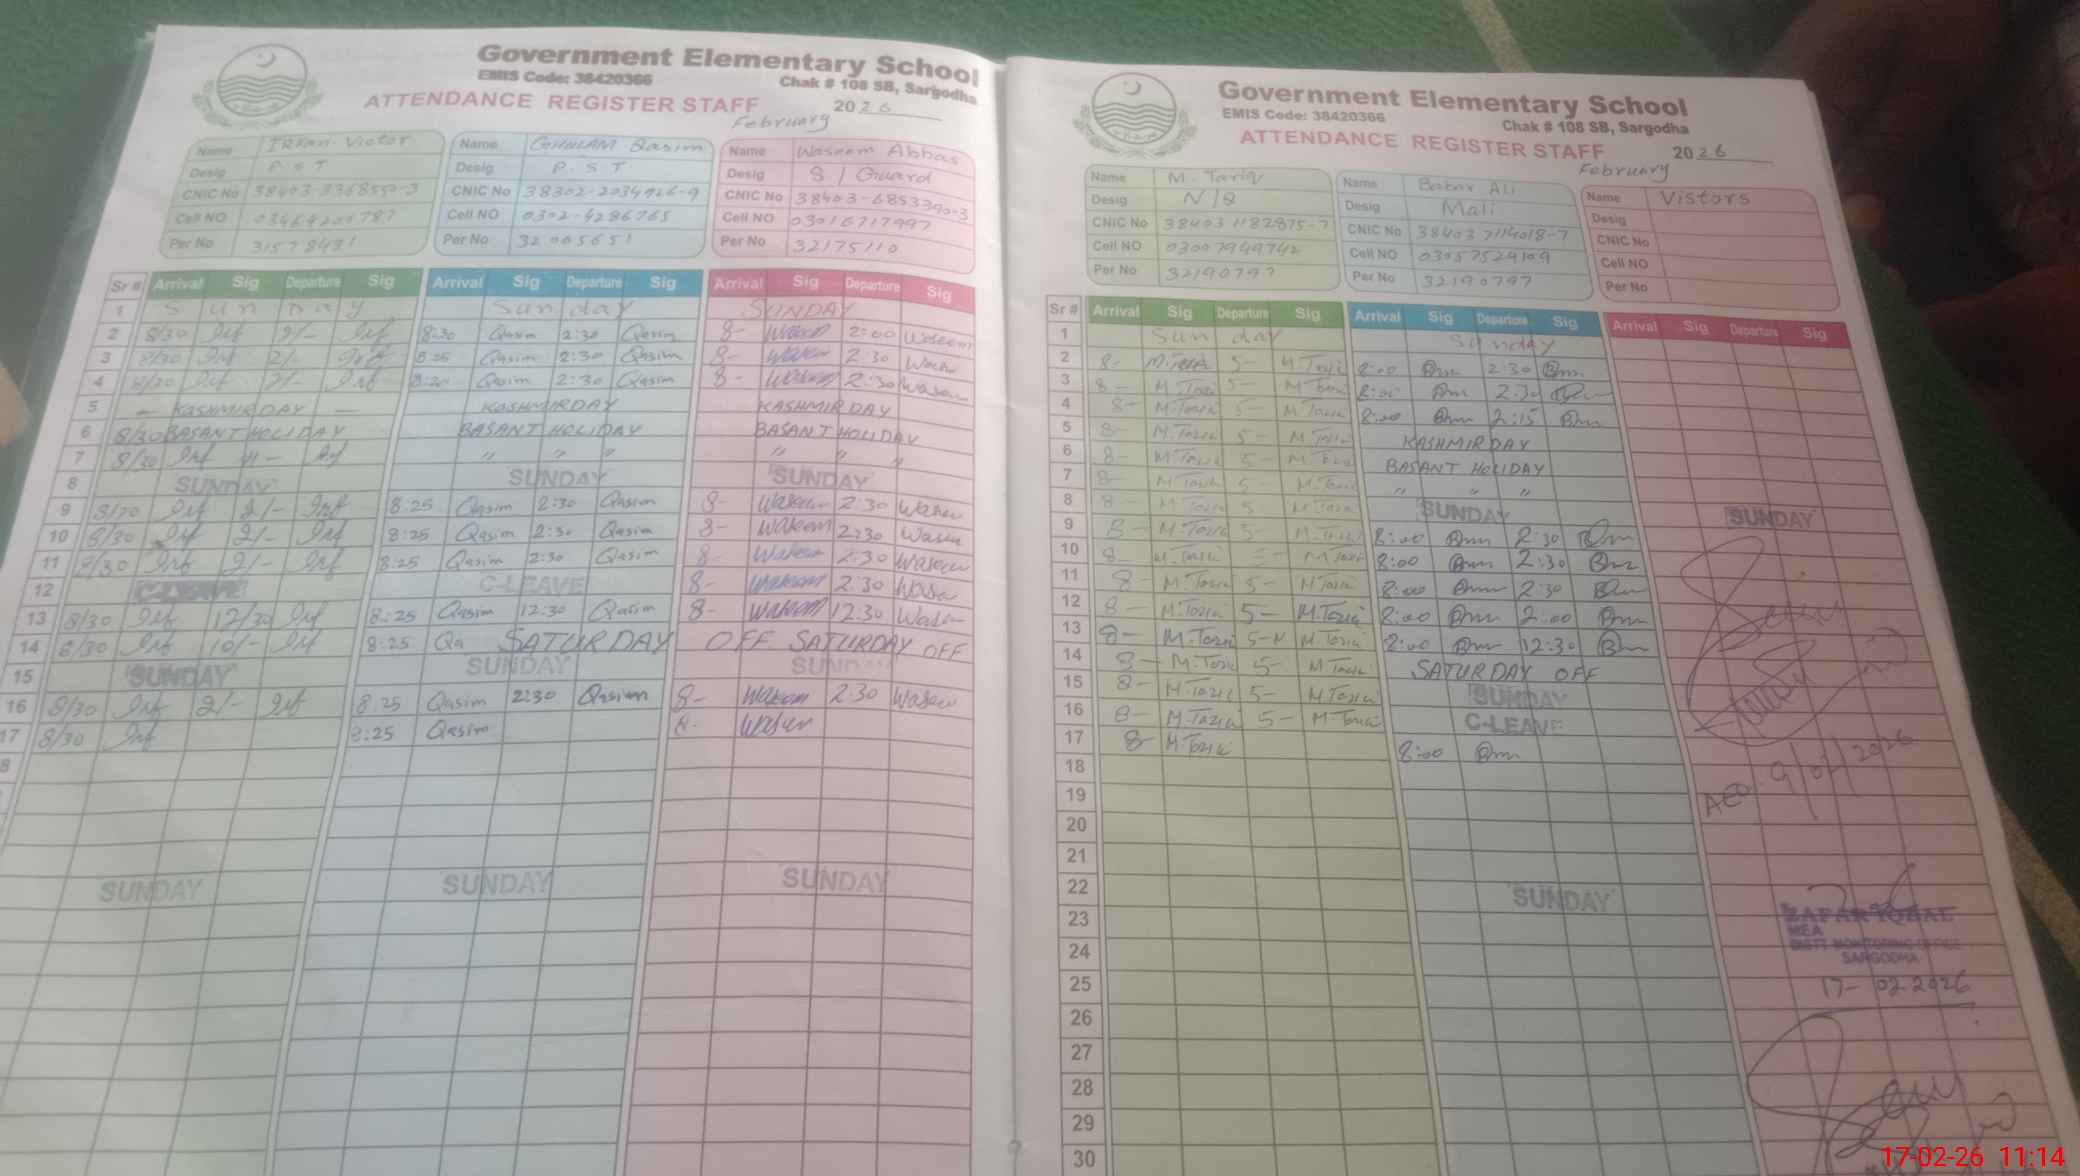 Government Elementary School
EMIS Code: 38420366
Chak # 108 SB, Sargodha
ATTENDANCE REGISTER STAFF
2026
February
Name Irfan Victor
Desig P.S.T
CNIC No
Cell NO
Per No
Name GHULAM Qasim
Desig P.S.T
CNIC No 38302-2034926-9
Cell NO 0302-4286765
Per No 32005651
Name Waseem Abbas
Desig S/Guard
CNIC No 38403-6853390-3
Cell NO 03016717997
Per No 32175110
Sr # Arrival Sig Departure Sig Arrival Sig Departure Sig Arrival Sig Departure Sig
1 Sunday Sunday SUNDAY
2 8/30 Irf 2/- Irf 8:30 Qasim 2:30 Qasim 8- Waseem 2:00 Waseem
3 8/30 Irf 2/- Irf 8:25 Qasim 2:30 Qasim 8- Waseem 2:30 Waseem
4 8/30 Irf 2/- Irf Qasim 2:30 Qasim 8- Waseem 2:30 Waseem
5 - KASHMIR DAY - KASHMIR DAY KASHMIR DAY
6 8/30 BASANT HOLIDAY BASANT HOLIDAY BASANT HOLIDAY
7 8/30 Irf Irf " " " " " "
8 SUNDAY SUNDAY SUNDAY
9 8/30 Irf 2/- Irf 8:25 Qasim 2:30 Qasim 8- Waseem 2:30 Waseem
10 8/30 Irf 2/- Irf 8:25 Qasim 2:30 Qasim 8- Waseem 2:30 Waseem
11 8/30 Irf 2/- Irf 8:25 Qasim 2:30 Qasim 8- Waseem 2:30 Waseem
12 C-LEAVE C-LEAVE 8- Waseem 2:30 Waseem
13 8/30 Irf 12/30 Irf 8:25 Qasim 12:30 Qasim 8- Waseem 12:30 Waseem
14 8/30 Irf 10/- Irf 8:25 Qa SATURDAY OFF SATURDAY OFF
15 SUNDAY SUNDAY SUNDAY
16 8/30 Irf 2/- Irf 8:25 Qasim 2:30 Qasim 8- Waseem 2:30 Waseem
17 8/30 Irf 8:25 Qasim 8- Waseem
SUNDAY SUNDAY SUNDAY
Government Elementary School
EMIS Code: 38420366
Chak # 108 SB, Sargodha
ATTENDANCE REGISTER STAFF
2026
February
Name M. Tariq
Desig N/Q
CNIC No 38403 1182875-7
Cell NO 03007949742
Per No 32190797
Name Babar Ali
Desig Mali
CNIC No 38403 7114018-7
Cell NO 03057524109
Per No 32190797
Name Vistors
Desig
CNIC No
Cell NO
Per No
Sr # Arrival Sig Departure Sig Arrival Sig Departure Sig Arrival Sig Departure Sig
1 Sunday Sunday
2 8- M.Tariq 5- M.Tariq 8:00 2:30
3 8- M.Tariq 5- M.Tariq 8:00 2:30
4 8- M.Tariq 5- M.Tariq 8:00 2:15
5 8- M.Tariq 5- M.Tariq KASHMIR DAY
6 8- M.Tariq 5- M.Tariq BASANT HOLIDAY
7 8- M.Tariq 5- M.Tariq " " "
8 8- M.Tariq 5- M.Tariq SUNDAY SUNDAY
9 8- M.Tariq 5- M.Tariq 8:00 2:30
10 8- M.Tariq 5- M.Tariq 8:00 2:30
11 8- M.Tariq 5- M.Tariq 8:00 2:30
12 8- M.Tariq 5- M.Tariq 8:00 2:00
13 8- M.Tariq 5- M.Tariq 8:00 12:30
14 8- M.Tariq 5- M.Tariq SATURDAY OFF
15 8- M.Tariq 5- M.Tariq SUNDAY
16 8- M.Tariq 5- M.Tariq C-LEAVE
17 8- M.Tariq 8:00
AEO 9/02/2026
18
19
20
21
22 SUNDAY
23
24
25
26
27
28
29
30
ZAFAR IQBAL
MEA
DISTT MONITORING OFFICE
SARGODHA
17-02-2026
17-02-26 11:14